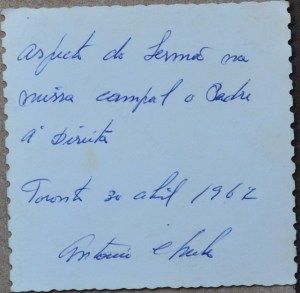 aspecto do Sermão na
missa campal o Padre
à Direita
Toronto 30 abril 1962
António